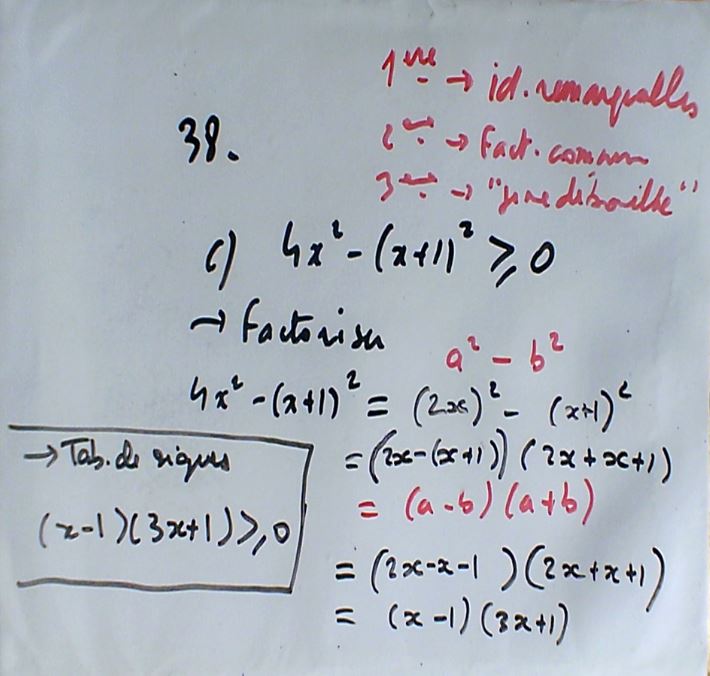 1ère → id. remarquables
38.
2ème → Fact. commun
3ème → "
c) 4x² - (x+1)² ⩾ 0
→ Factoriser
a² - b²
4x² - (x+1)² = (2x)² - (x+1)²
= (2x-(x+1)) (2x+x+1)
= (a-b) (a+b)
= (2x-x-1) (2x+x+1)
= (x-1) (3x+1)
→ Tab. de signes
(x-1)(3x+1) ⩾ 0